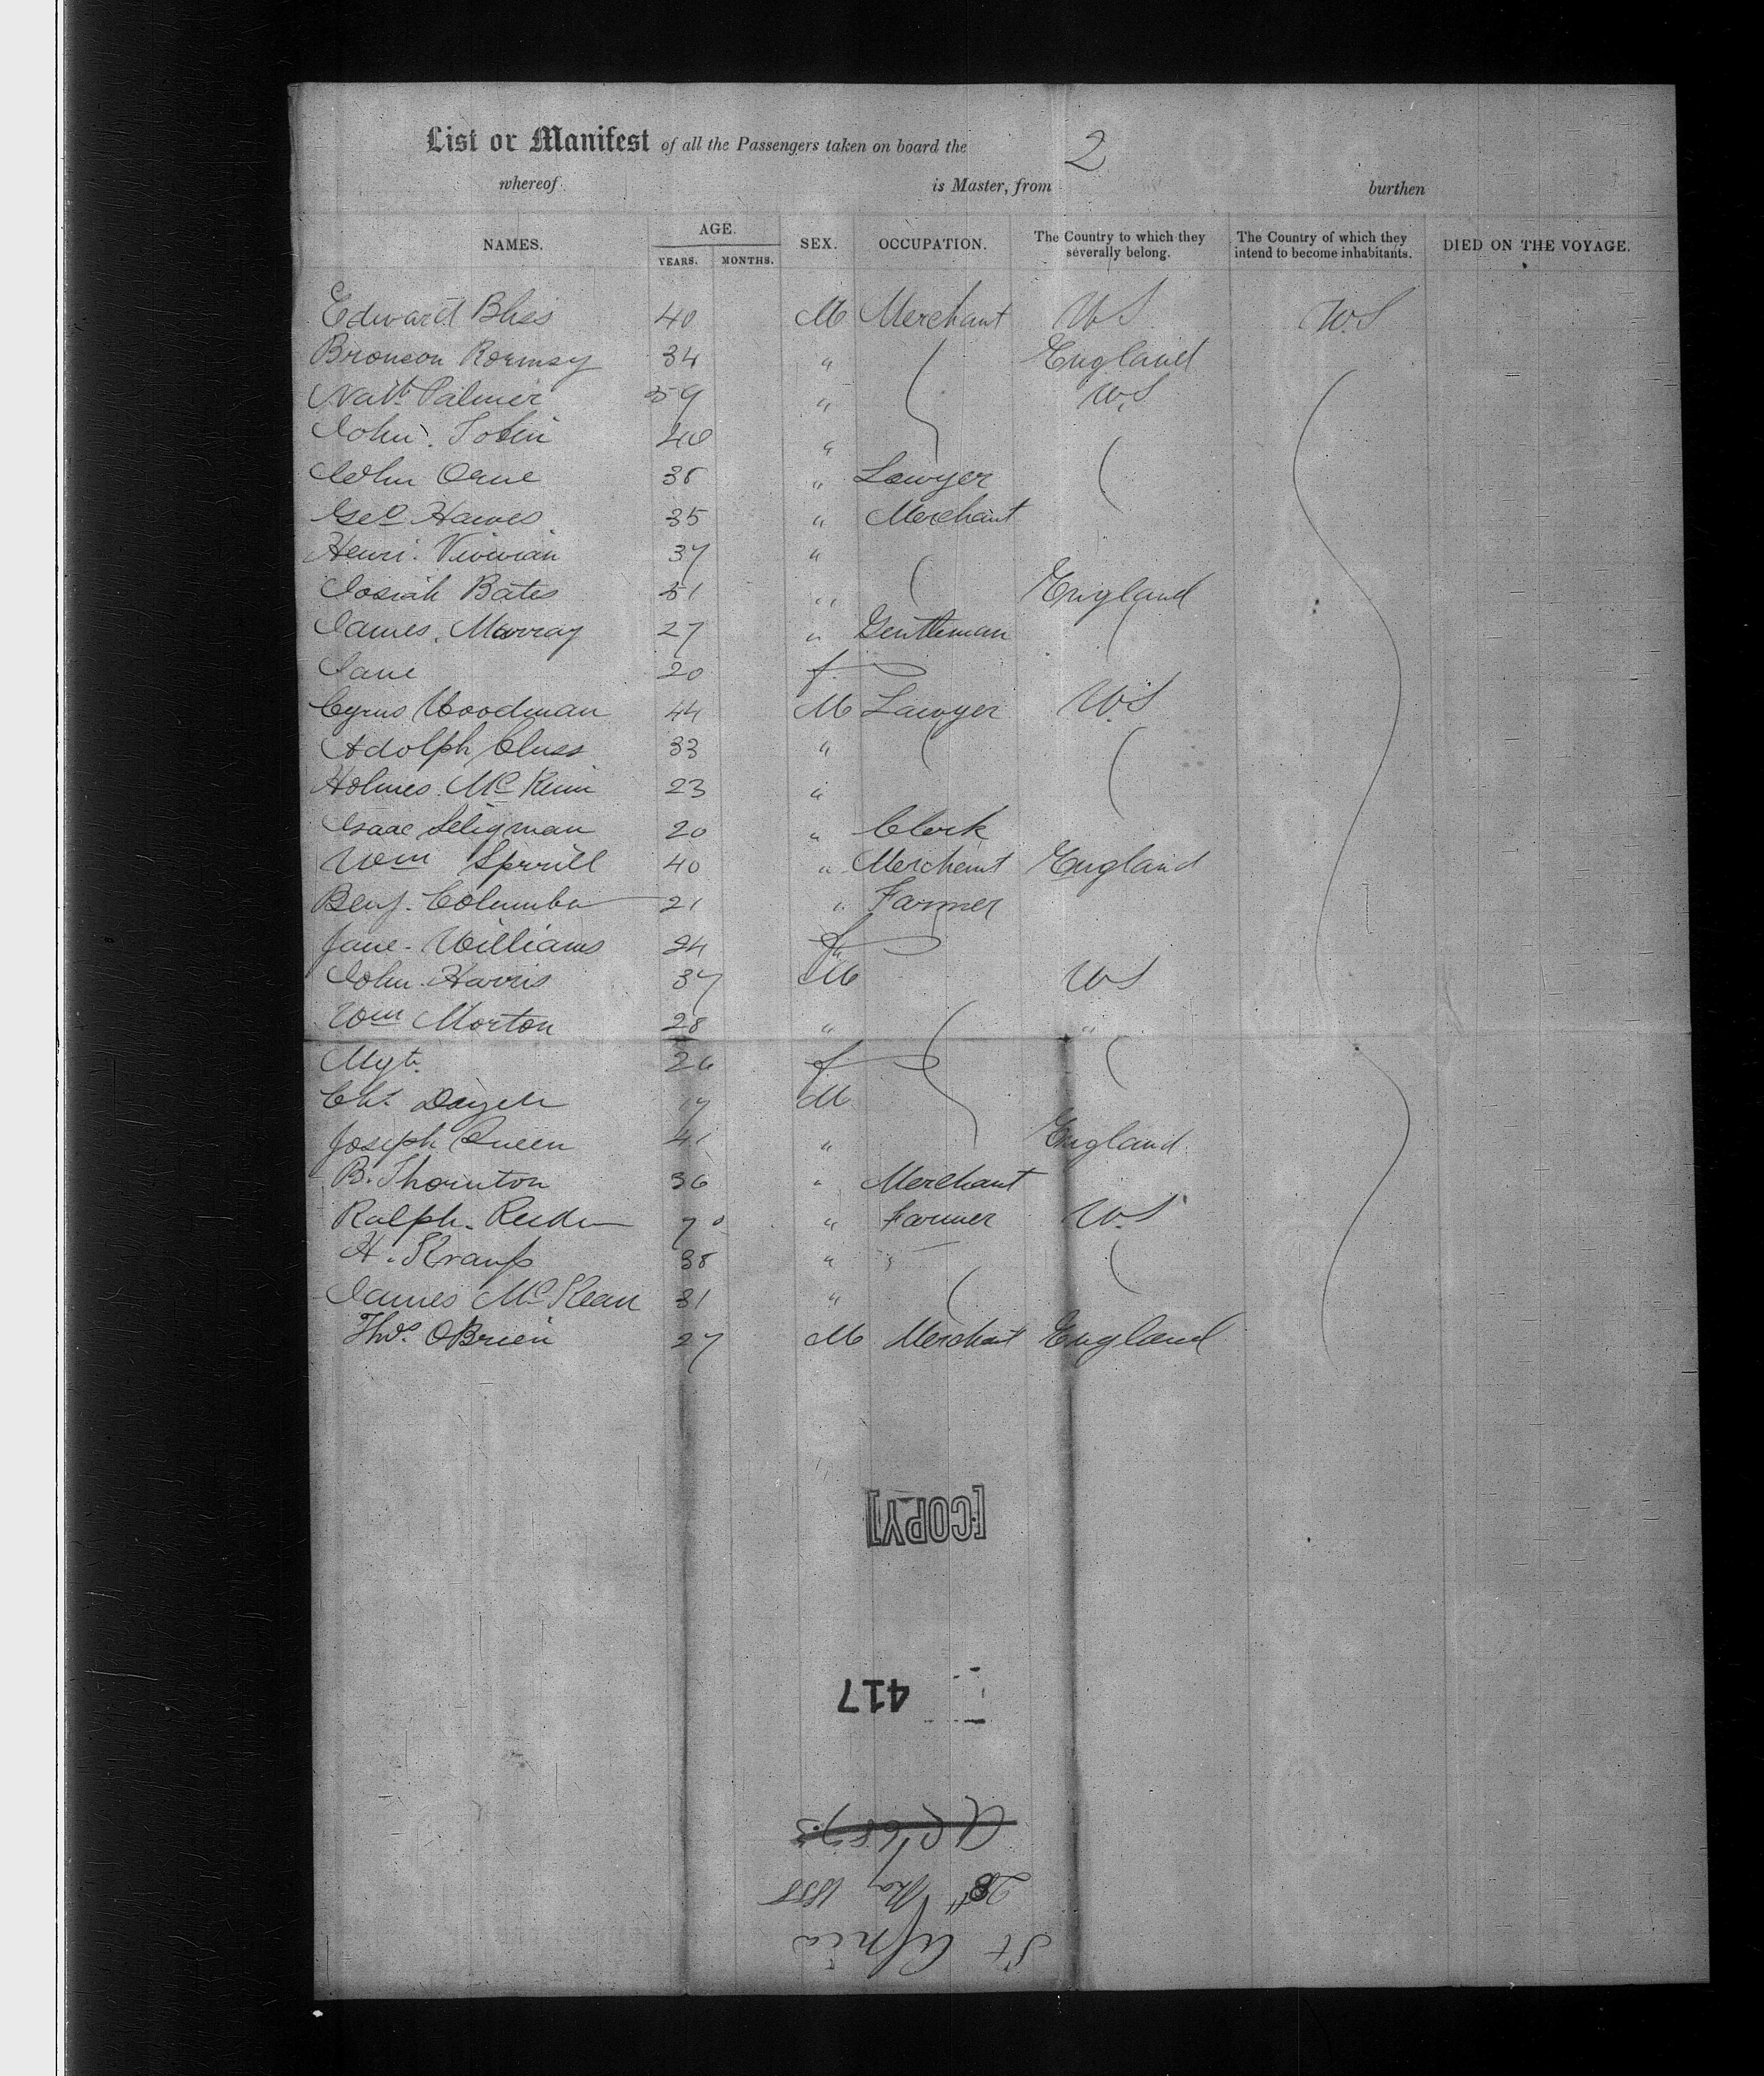 List or Manifest of all the Passengers taken on board the 2
whereof is Master, from burthen
NAMES. AGE. YEARS. MONTHS. SEX. OCCUPATION. The Country to which they severally belong. The Country of which they intend to become inhabitants. DIED ON THE VOYAGE.
Edward Bliss 40 M Merchant US U.S
Bronson 34 " England
Nath Palmer 59 " U.S
John. Tobin 40 "
John Orne 38 " Lawyer
Geo Hawes 35 " Merchant
Henri. Vivivian 37 "
Josiah Bates 51 " England
James. Murray 27 " Gentleman
Jane 20 f
Cyrus Woodman 44 M Lawyer U.S
Adolph Cluss 33 "
Holmes. 23 "
Isaac Seligman 20 " Clerk
Wm 40 " Merchant England
Benj. Columbu 21 " Farmer
Jane. Williams 24 f
John. Harris 37 M US
Wm Morton 28 " "
Mgt. 26 f
M
Joseph Queen 41 " England
B. Thornton 36 " Merchant
Ralph. 70 " Farmer U.S
H. Strauss 38 "
James McKean 31 "
Thos. OBrien 27 M Merchant England
[COPY]
417
28th May 1858
St Africa